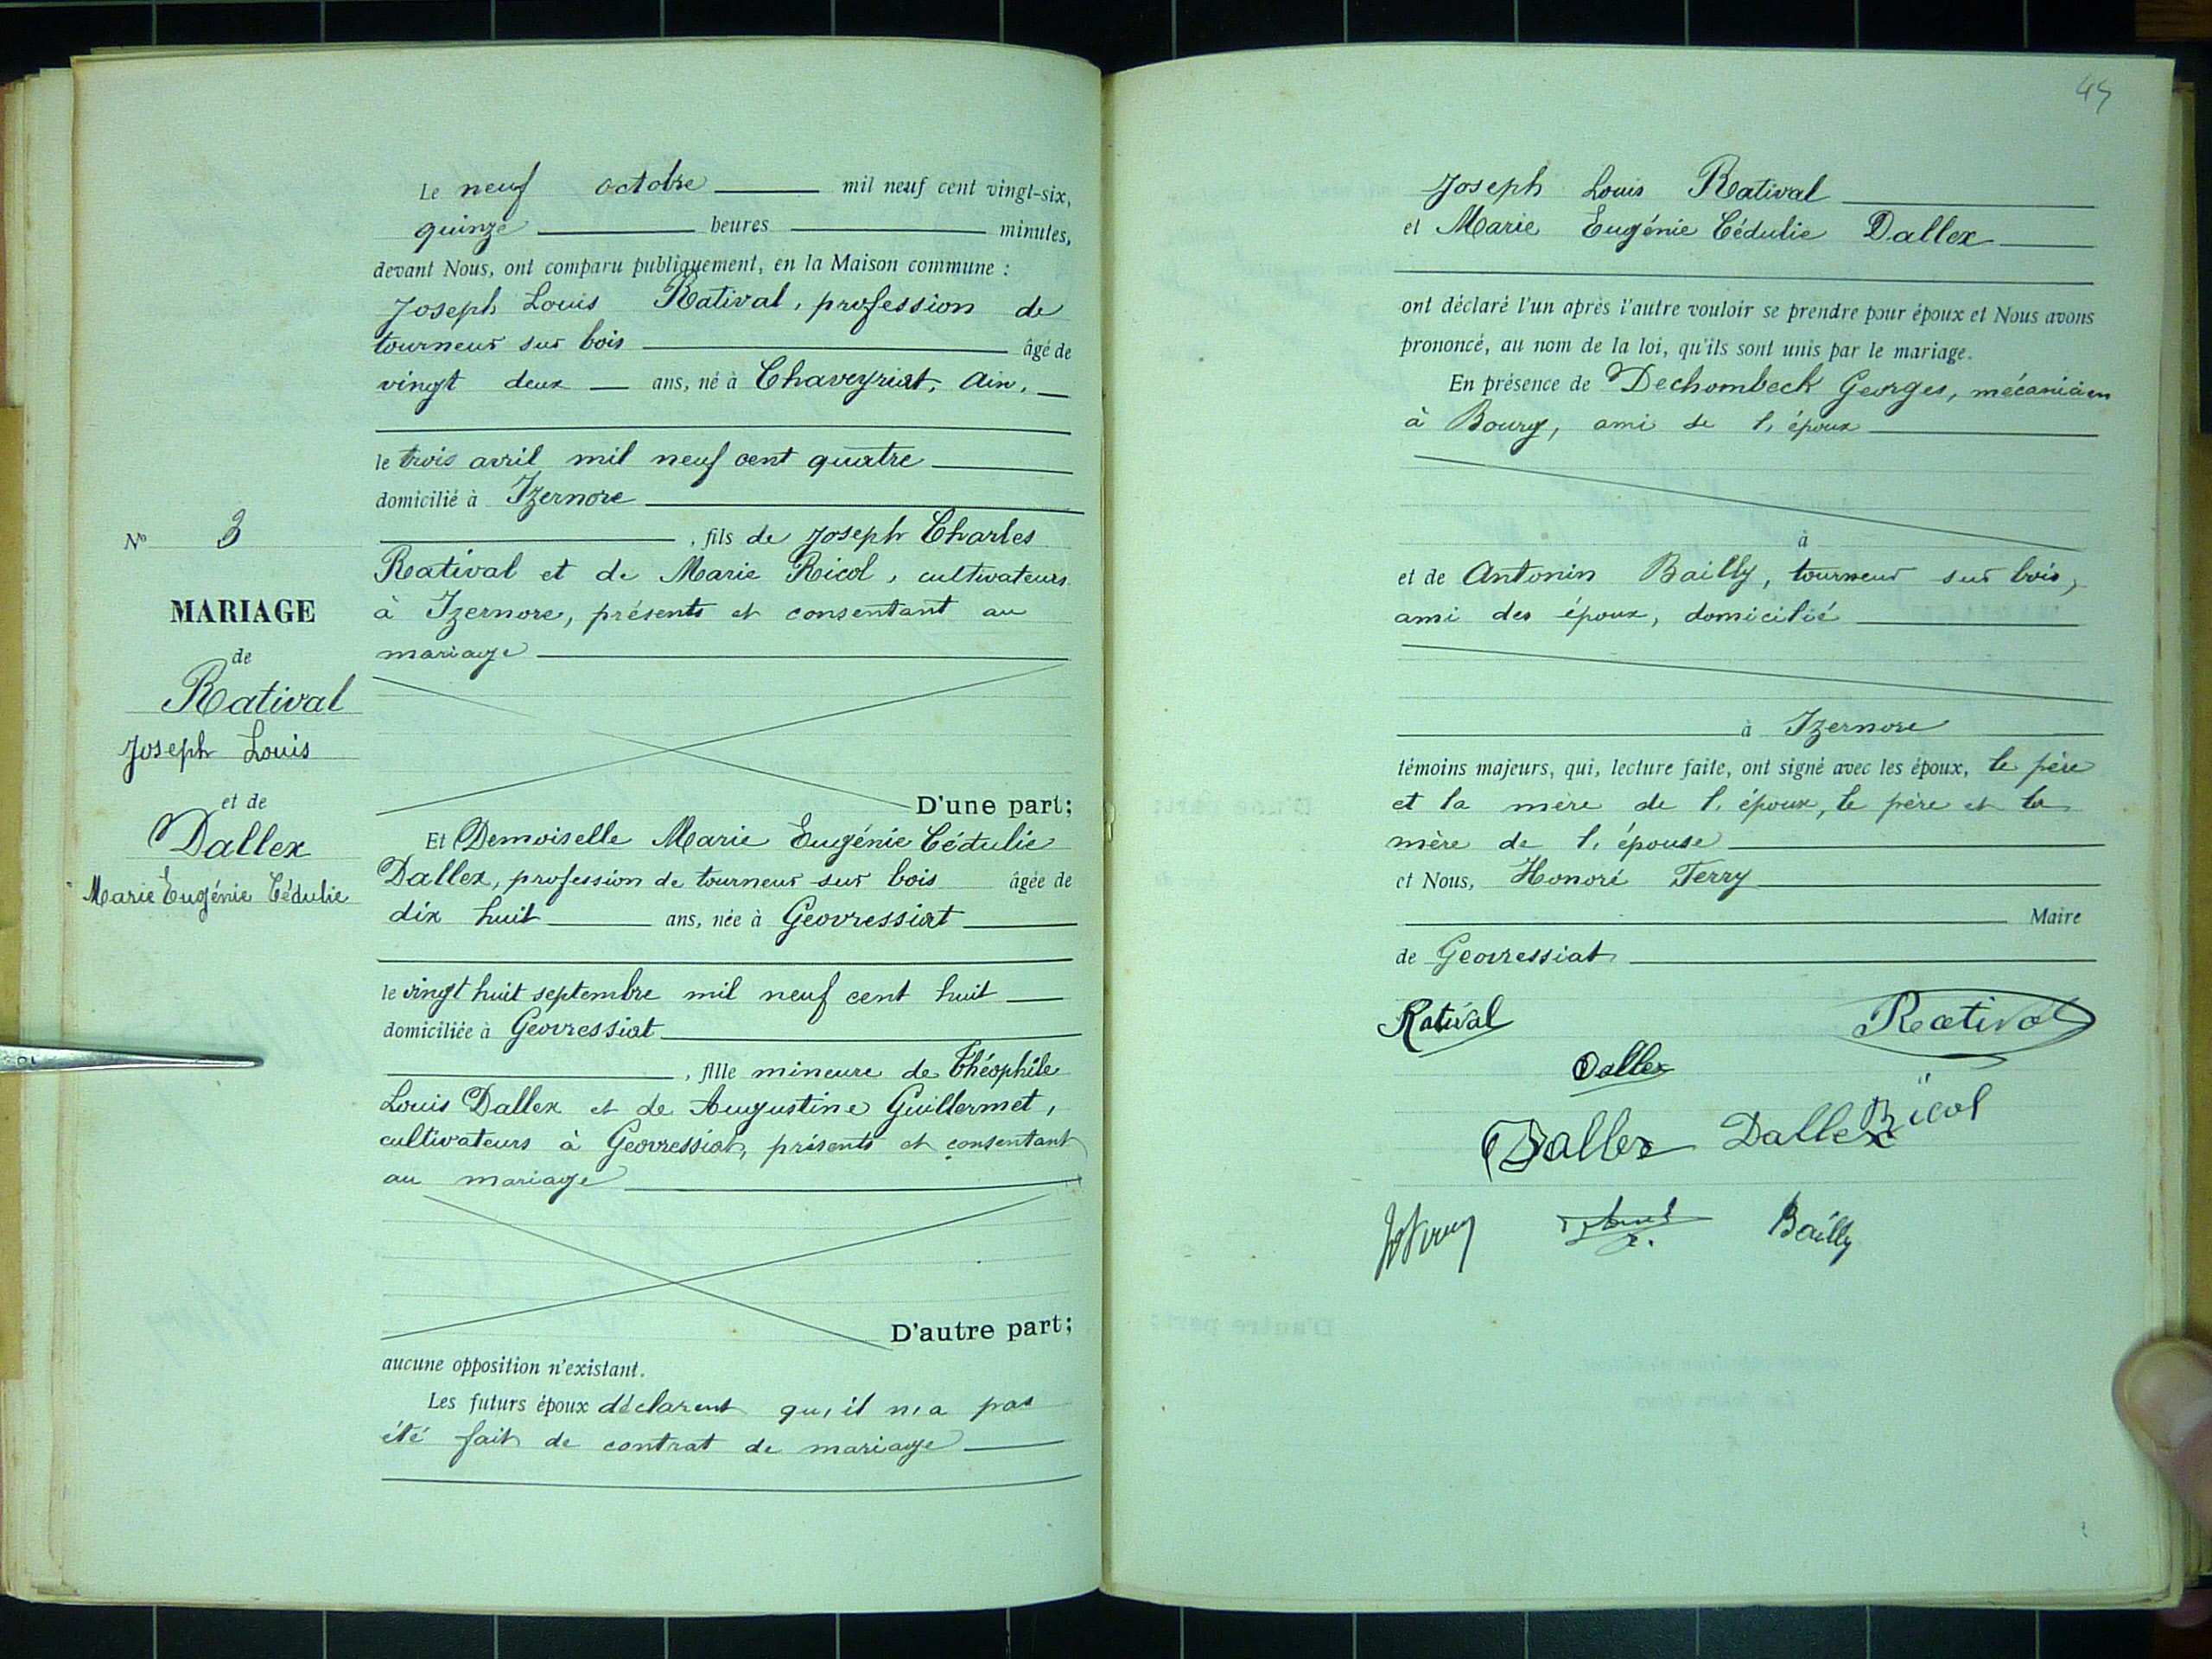 N° 3
MARIAGE
de
Ratival
Joseph Louis
et de
Dallex
Marie Eugénie Cédulie
Le neuf octobre mil neuf cent vingt-six,
quinze heures minutes,
devant Nous, ont comparu publiquement, en la Maison commune :
Joseph Louis Ratival, profession de
tourneur sur bois âgé de
vingt deux ans, né à Chaveyriat, Ain,
le trois avril mil neuf cent quatre
domicilié à Izernore
, fils de Joseph Charles
Ratival et de Marie Ricol, cultivateurs
à Izernore, présents et consentant au
mariage
D'une part;
Et Demoiselle Marie Eugénie Cédulie
Dallex, profession de tourneur sur bois âgée de
dix huit ans, née à Geovressiat
le vingt huit septembre mil neuf cent huit
domiciliée à Geovressiat
, fille mineure de Théophile
Louis Dallex et de Augustine Guillermet,
cultivateurs à Geovressiat, présents et consentant
au mariage
D'autre part;
aucune opposition n'existant.
Les futurs époux déclarent qu'il n'a pas
été fait de contrat de mariage
45
Joseph Louis Ratival
et Marie Eugénie Cédulie Dallex
ont déclaré l'un après l'autre vouloir se prendre pour époux et Nous avons
prononcé, au nom de la loi, qu'ils sont unis par le mariage.
En présence de Dechombeck Georges, mécanicien
à Bourg, ami de l'époux
à
et de Antonin Bailly, tourneur sur bois,
ami des époux, domicilié
à Izernore
témoins majeurs, qui, lecture faite, ont signé avec les époux, le père
et la mère de l'époux, le père et la
mère de l'épouse
et Nous, Honoré Ferry
Maire
de Geovressiat
Ratival Ratival
Dallex
Dallex Dallex Ricol
Bailly